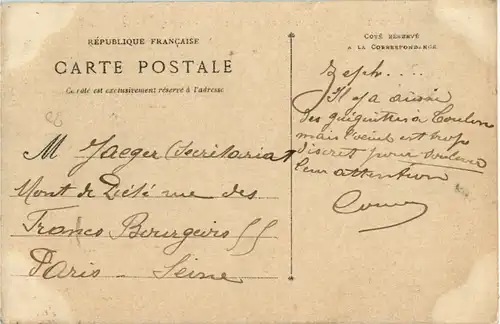 RÉPUBLIQUE FRANÇAISE
CARTE POSTALE
Ce côté est exclusivement réservé à l'adresse
M Jaeger (Secrétariat)
Mont de Piété rue des
Francs Bourgeois 55
Paris - Seine
COTÉ RÉSERVÉ
A LA CORRESPONDANCE
Zeph....
Il y a aussi
des guiguittes à Toulon
mais l'oeuil est trop
discret pour
leur attention